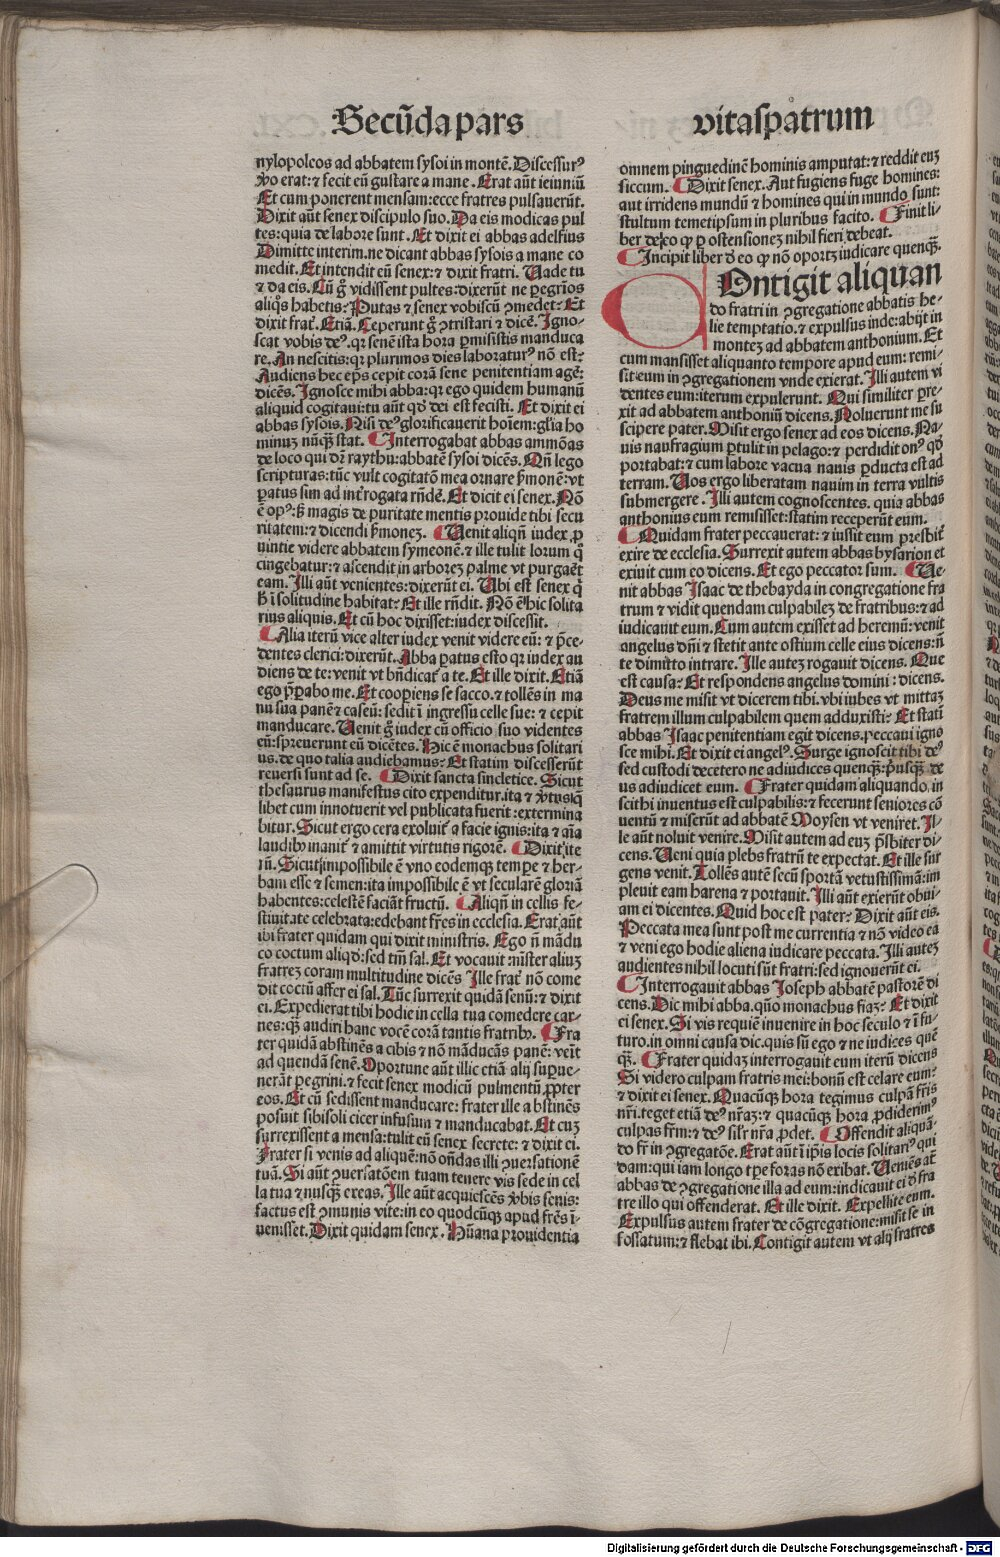 Secūda pars
vitaspatrum
nylopoleos ad abbatem sysoi in montē. Discessurꝰ
ꝟo erat: ⁊ fecit eū gustare a mane. Erat aūt ieiuniū
Et cum ponerent mensam: ecce fratres pulsauerūt.
Dixit aūt senex discipulo suo. Da eis modicas pul
tes: quia de labore sunt. Et dixit ei abbas adelfius
Dimitte interim. ne dicant abbas sysois a mane co
medit. Et intendit eū senex: ⁊ dixit fratri. Uade tu
⁊ da eis. Cū g̊ vidissent pultes: dixerūt ne pegrios
aliqͦs habetis: Putas ⁊ senex vobiscū ꝯmedet: Et
dixit frať. Etiā. Ceperunt g̊ ꝯtristari ⁊ dicē. Igno-
scat vobis deꝰ. qꝛ senē ista hora ꝑmisistis manduca
re. An nescitis: qꝛ plurimos dies laboraturꝰ nō est:
Audiens hec ep̄s cepit corā sene penitentiam agē:
dicēs. Ignosce mihi abba: qꝛ ego quidem humanū
aliquid cogitaui: tu aūt qd̄ dei est fecisti. Et dixit ei
abbas sysois. Nisi deꝰ glorificauerit hoīem: gl̄ia ho
minuꝫ nūꝙ̄ stat. Interrogabat abbas ammōas
de loco qui dr̄ raythu: abbatē sysoi dicēs. Qn̄ lego
scripturas: tūc vult cogitatō mea ornare ẜmonē: vt
ꝑatus sim ad int̓rogata rn̄dē. Et dicit ei senex. Nō
ē opꝰ: ẜꝫ magis de puritate mentis prouide tibi secu
ritatem: ⁊ dicendi ẜmoneꝫ. Uenit aliqn̄ iudex ꝓ
uintie videre abbatem symeonē. ⁊ ille tulit lorum q̊
cingebatur: ⁊ ascendit in arboreꝫ palme vt purgaēt
eam. Illi aūt venientes: dixerūt ei. Ubi est senex q̊
h̄ ī solitudine habitat: Et ille rn̄dit. Nō ē hic solita
rius aliquis. Et cū hoc dixisset: iudex discessit.
Alia iterū vice alter iudex venit videre eū: ⁊ p̄ce-
dentes clerici: dixerūt. Abba ꝑatus esto qꝛ iudex au
diens de te: venit vt bn̄dicať a te. Et ille dixit. Etiā
ego p̄ꝑabo me. Et cooꝑiens se sacco. ⁊ tollēs in ma
nu sua panē ⁊ caseū: sedit ī ingressu celle sue: ⁊ cepit
manducare. Uenit g̊ iudex cū officio suo videntes
eū: spreuerunt eū dicētes. Hic ē monachus solitari
us. de quo talia audiebamus: Et statim discesserūt
reuersi sunt ad se. Dixit sancta sincletice. Sicut
thesaurus manifestus cito expenditur. ita ⁊ ꝟtus ꝗ
libet cum innotuerit vel publicata fuerit: extermina
bitur. Sicut ergo cera exoluiť a facie ignis: ita ⁊ aīa
laudibꝰ inaniť ⁊ amittit virtutis rigorē. Dixit ite
rū. Sicut impossibile ē vno eodemqꝫ tempe ⁊ her-
bam esse ⁊ semen: ita impossibile ē vt secularē gloriā
habentes: celestē faciāt fructū. Aliqn̄ in cellis fe-
stiuitate celebrata: edebant fr̄es in ecclesia. Erat aūt
ibi frater quidam qui dixit ministris. Ego n̄ mādu
co coctum aliqd̄: sed tm̄ sal. Et vocauit m̄ster aliuꝫ
fratreꝫ coram multitudine dicēs Ille frať nō come
dit coctū affer ei sal. Tūc surrexit quidā senū: ⁊ dixit
ei. Expedierat tibi hodie in cella tua comedere car-
nes: qꝫ audiri hanc vocē corā tantis fratribꝰ. Fra
ter quidā abstinēs a cibis ⁊ nō māducās panē: veīt
ad quendā senē. Oportune aūt illic etiā alij suꝑue-
nerāt ꝑegrini. ⁊ fecit senex modicū pulmentū ꝓpter
eos. Et cū sedissent manducare: frater ille abstinēs
posuit sibi soli cicer infusum ⁊ manducabat. Et cuꝫ
surrexissent a mensa: tulit eū senex secrete: ⁊ dixit ei.
Frater si venis ad aliquē: nō on̄das illi ꝯuersationē
tuā. Si aūt ꝯuersatōem tuam tenere vis sede in cel
la tua ⁊ nusꝙ̄ exeas. Ille aūt acquiescēs ꝟbis senis:
factus est ꝯmunis vite: in eo quodcūqꝫ apud fr̄es ī-
uenisset. Dixit quidam senex. Hūana prouidentia
omnem pinguedinē hominis amputat: ⁊ reddit euꝫ
siccum. Dixit senex. Aut fugiens fuge homines:
aut irridens mundū ⁊ homines qui in mundo sunt:
stultum temetipsum in pluribus facito. Finit li-
ber de eo ꝙ ꝑ ostensioneꝫ nihil fieri debeat.
Incipit liber d̓ eo ꝙ nō oportꝫ iudicare quenqꝫ̄.
COntigit aliquan
do fratri in ꝯgregatione abbatis he-
lie temptatio. ⁊ expulsus inde: abijt in
monteꝫ ad abbatem anthonium. Et
cum mansisset aliquanto tempore apud eum: remi-
sit eum in ꝯgregationem vnde exierat. Illi autem vi
dentes eum: iterum expulerunt. Qui similiter pre-
xit ad abbatem anthoniū dicens. Noluerunt me su
scipere pater. Misit ergo senex ad eos dicens. Na-
uis naufragium ꝑtulit in pelago: ⁊ perdidit onꝰ qd̓
portabat: ⁊ cum labore vacua nauis ꝑducta est ad
terram. Uos ergo liberatam nauim in terra vultis
submergere. Illi autem cognoscentes. quia abbas
anthonius eum remisisset: statim receperūt eum.
Quidam frater peccauerat: ⁊ iussit eum p̄sbit̓
exire de ecclesia. Surrexit autem abbas bysarion et
exiuit cum eo dicens. Et ego peccator sum. Ue-
nit abbas Isaac de thebayda in congregatione fra
trum ⁊ vidit quendam culpabileꝫ de fratribus: ⁊ ad
iudicauit eum. Cum autem exisset ad heremū: venit
angelus dn̄i ⁊ stetit ante ostium celle eius dicens: n̄
te dimitto intrare. Ille auteꝫ rogauit dicens. Que
est causa: Et respondens angelus domini: dicens.
Deus me misit vt dicerem tibi. vbi iubes vt mittaꝫ
fratrem illum culpabilem quem adduxisti: Et statī
abbas Isaac penitentiam egit dicens. peccaui igno
sce mihi. Et dixit ei angelꝰ. Surge ignoscit tibi deꝰ
sed custodi decetero ne adiudices quenqꝫ: p̄usqꝫ̄ de
us adiudicet eum. Frater quidam aliquando in
scithi inuentus est culpabilis: ⁊ fecerunt seniores cō
uentū ⁊ miserūt ad abbatē Moysen vt veniret. Il-
le aūt noluit venire. Misit autem ad euꝫ p̄sbiter di-
cens. Ueni quia plebs fratrū te expectat. Et ille sur
gens venit. Tollēs autē secū sportā vetustissimā: im
pleuit eam harena ⁊ portauit. Illi aūt exierūt obui-
am ei dicentes. Quid hoc est pater: Dixit aūt eis.
Peccata mea sunt post me currentia ⁊ nō video ea
⁊ veni ego hodie aliena iudicare peccata. Illi auteꝫ
audientes nihil locuti sūt fratri: sed ignouerūt ei.
Interrogauit abbas Joseph abbatē pastorē di
cens. Dic mihi abba. quō monachus fiaꝫ: Et dixit
ei senex. Si vis requiē inuenire in hoc seculo ⁊ ī fu-
turo. in omni causa dic. quis sū ego ⁊ ne iudices quē
qꝫ̄. Frater quidaꝫ interrogauit eum iterū dicens
Si videro culpam fratris mei: bonū est celare eum:
⁊ dixit ei senex. Quacūqꝫ hora tegimus culpā fr̄is
nr̄i. teget etiā deꝰ nr̄aꝫ: ⁊ quacūqꝫ hora ꝓdiderimꝰ
culpas fr̄m: ⁊ deꝰ sil̓r nr̄a ꝓdet. Offendit aliquā-
do fr̄ in ꝯgregatōe. Erat aūt ī ip̄is locis solitariꝰ qui
dam: qui iam longo tꝑe foras nō exibat. Ueniēs aūt
abbas de ꝯgregatione illa ad eum: indicauit ei d̓ fra
tre illo qui offenderat. Et ille dixit. Expellite eum.
Expulsus autem frater de cōgregatione: misit se in
fossatum: ⁊ flebat ibi. Contigit autem vt alij fratres
Digitalisierung gefördert durch die Deutsche Forschungsgemeinschaft - DFG